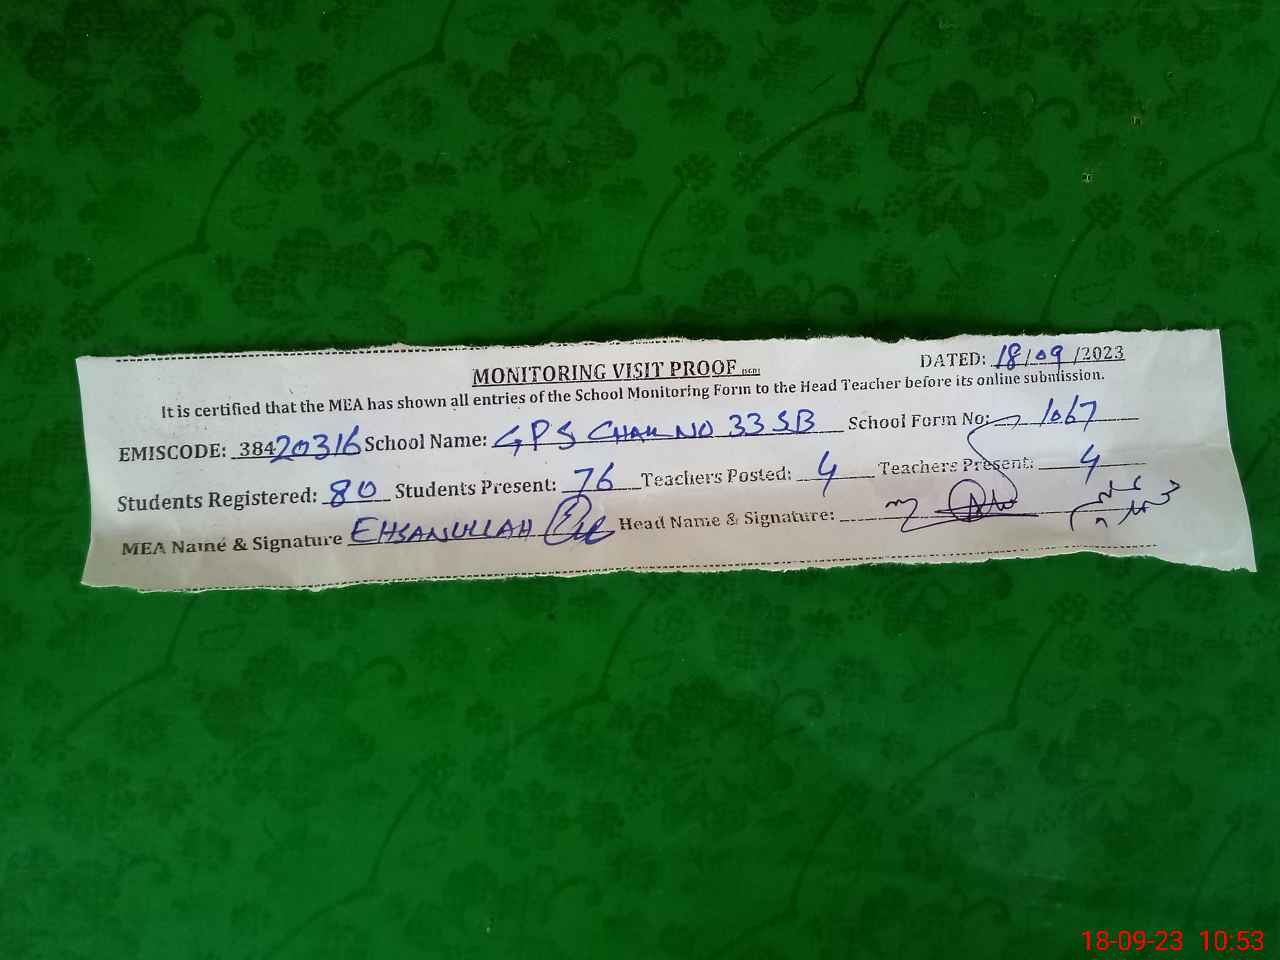 MONITORING VISIT PROOF DATED: 18/09/2023
It is certified that the MEA has shown all entries of the School Monitoring Form to the Head Teacher before its online submission.
EMISCODE: 38420316 School Name: GPS CHAK NO 33 SB School Form No: 1067
Students Registered: 80 Students Present: 76 Teachers Posted: 4 Teachers Present: 4
MEA Name & Signature EHSANULLAH Head Name & Signature:
18-09-23 10:53